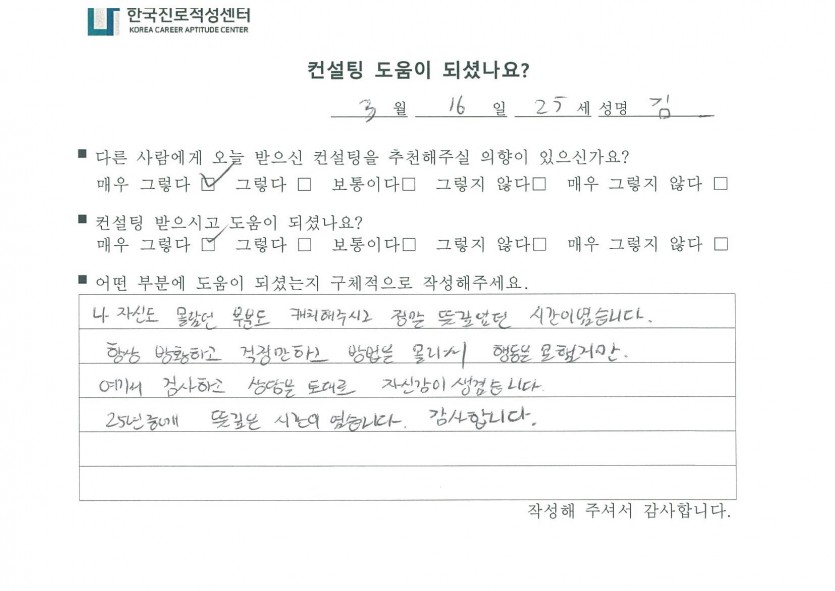 한국진로적성센터
KOREA CAREER APTITUDE CENTER
컨설팅 도움이 되셨나요?
3 월 16 일 25 세 성명 김
■ 다른 사람에게 오늘 받으신 컨설팅을 추천해주실 의향이 있으신가요?
매우 그렇다 ☑ 그렇다 □ 보통이다□ 그렇지 않다□ 매우 그렇지 않다 □
■ 컨설팅 받으시고 도움이 되셨나요?
매우 그렇다 ☑ 그렇다 □ 보통이다□ 그렇지 않다□ 매우 그렇지 않다 □
■ 어떤 부분에 도움이 되셨는지 구체적으로 작성해주세요.
나 자신도 몰랐던 부분도 캐치해주시고 정말 뜻깊었던 시간이였습니다.
항상 방황하고 걱정만하고 방법을 몰라서 행동을 못했지만.
여기서 검사하고 상담을 토대로 자신감이 생겼습니다.
25년중에 뜻깊은 시간이 였습니다. 감사합니다.
작성해 주셔서 감사합니다.